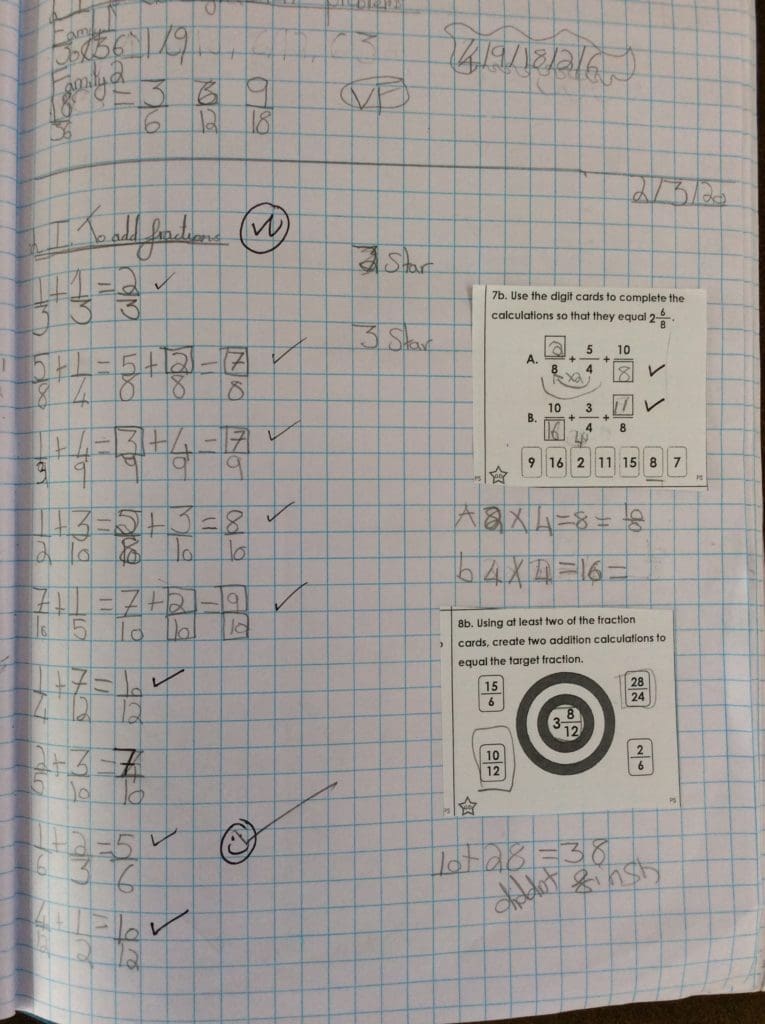 problem
Family 1
1/9
4/9/18/2/6
Family 2
8 = 3 3 9
6 12 18
VF
2/3/20
L.I. To add fractions
2 Star
1/3 + 1/3 = 2/3 ✓
3 Star
5/8 + 1/4 = 5/8 + 2/8 = 7/8 ✓
1/3 + 4/9 = 3/9 + 4/9 = 7/9 ✓
1/2 + 3/10 = 5/10 + 3/10 = 8/10 ✓
7/10 + 1/5 = 7/10 + 2/10 = 9/10 ✓
1/4 + 7/12 = 10/12 ✓
2/5 + 3/10 = 7/10
1/6 + 2/3 = 5/6 ✓
4/12 + 1/2 = 10/12 ✓
7b. Use the digit cards to complete the
calculations so that they equal 2 6/8.
A. 2/8 + 5/4 + 10/8 ✓
x2
B. 10/16 + 3/4 + 11/8 ✓
9 16 2 11 15 8 7
PS PS
A 2 x 4 = 8 = 10/8
b 4 x 4 = 16 =
8b. Using at least two of the fraction
cards, create two addition calculations to
equal the target fraction.
15/6 28/24
3 8/12
10/12 2/6
PS PS
10 + 28 = 38
diddot finsh